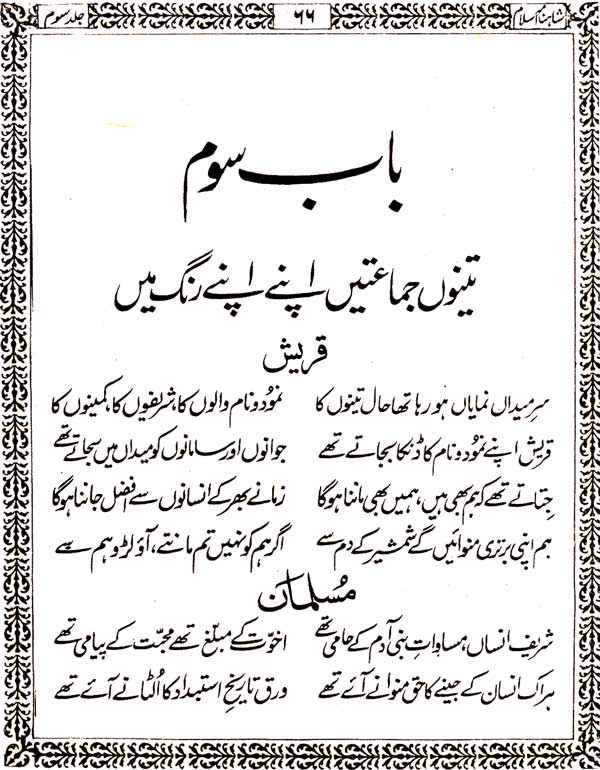 شاہنامہ اسلام ۶۶ جلد سوم
باب سوم
تینوں جماعتیں اپنے اپنے رنگ میں
قریش
سرِ میداں نمایاں ہو رہا تھا حال تینوں کا نمود و نام والوں کا، شریفوں کا، کمینوں کا
قریش اپنے نمود و نام کا ڈنکا بجاتے تھے جوانوں اور سامانوں کو میداں میں سجاتے تھے
جتاتے تھے کہ ہم بھی ہیں، ہمیں بھی ماننا ہوگا زمانے بھر کے انسانوں سے افضل جاننا ہوگا
ہم اپنی برتری منوائیں گے شمشیر کے دم سے اگر ہم کو نہیں تم مانتے، آؤ لڑو ہم سے
مُسلمان
شریف انساں، مساواتِ بنی آدم کے حامی تھے اخوّت کے مبلّغ تھے محبّت کے پیامی تھے
ہر اک انسان کے جینے کا حق منوانے آئے تھے ورق تاریخِ استبداد کا اُلٹانے آئے تھے